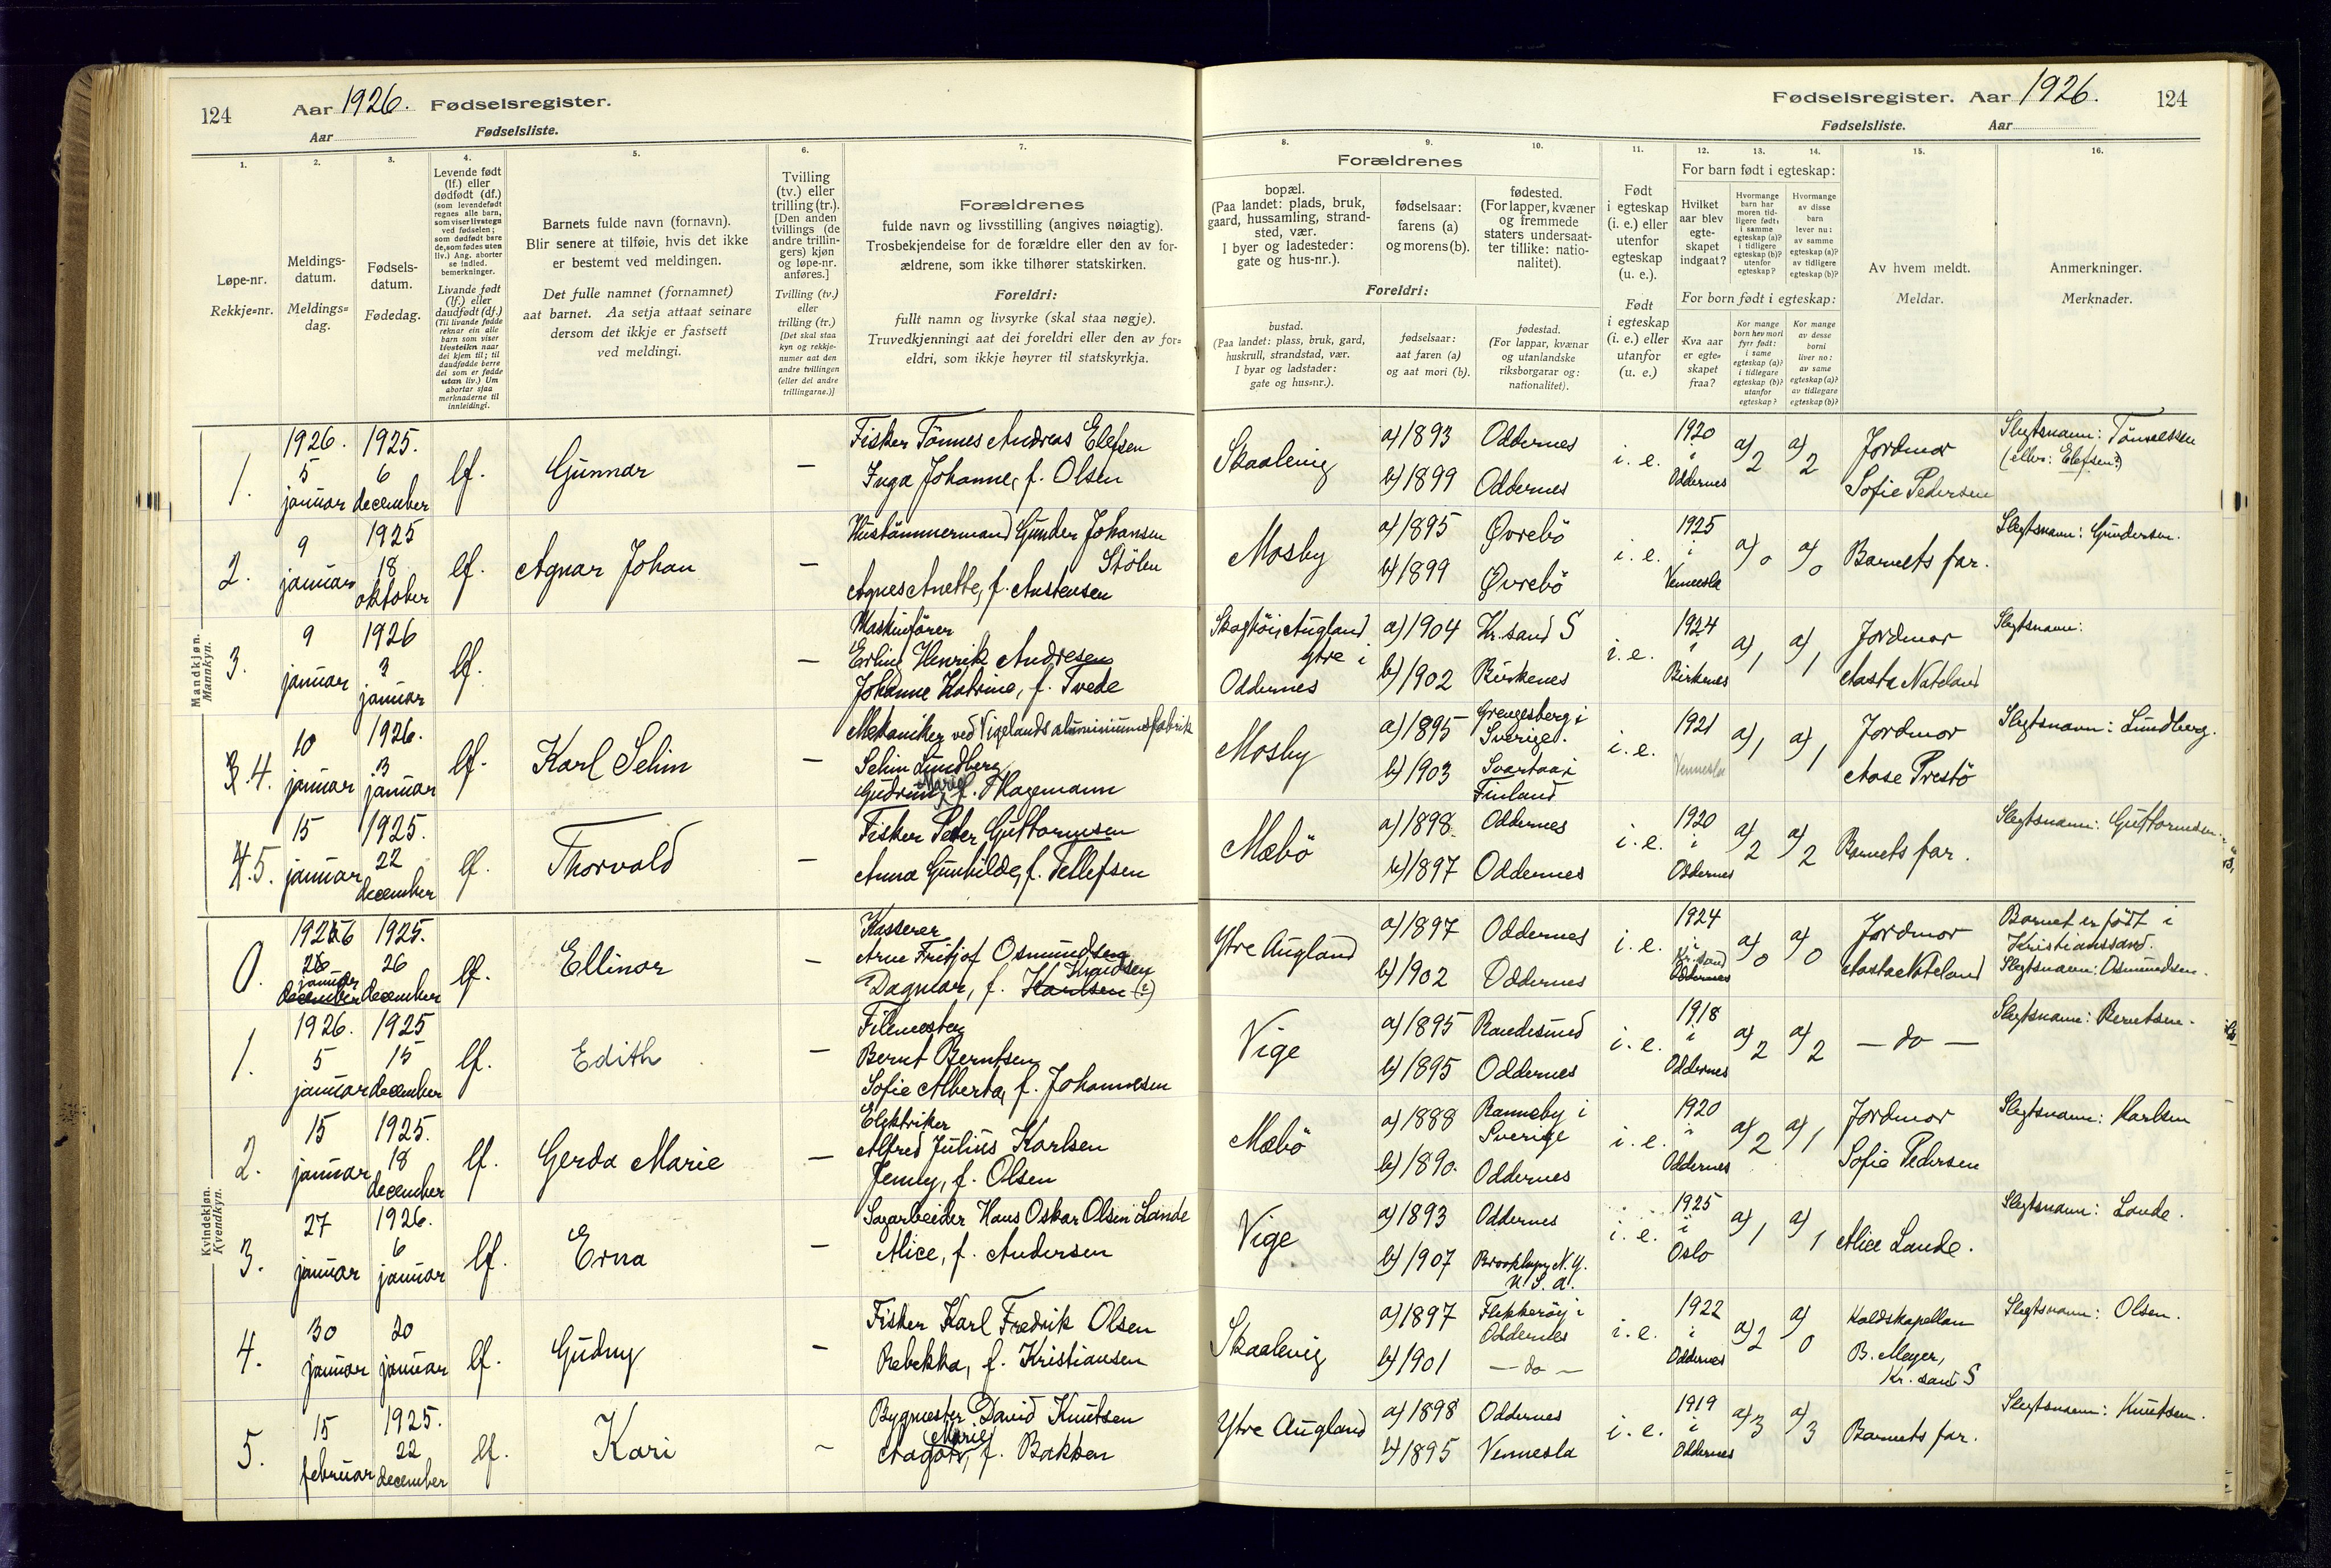 124
Aar 1926. Fødselsregister.
Aar
Fødselsliste.
Fødselsregister. Aar 1926.
124
Fødselsliste.
Aar
1.
Løpe-nr.
Rekkje=nr.
2.
Meldings-
datum.
Meldings=
dag.
3.
Fødsels-
datum.
Fødedag.
4.
Levende født
(lf.) eller
dødfødt (df.)
(som levendefødt
regnes alle barn,
som viser livstegn
ved fødselen;
som dødfødt bare
de, som fødes uten
liv.) Ang. aborter
se indled.
bemerkninger.
Livande født
(lf.) eller
daudfødt (df.)
(Til livande fødde
reknar ein alle
barn som viser
livsteikn naar
dei kjem til; til
daudfødde berre
dei som er fødde
utan liv.) Um
abortar sjaa
merknaderne til
innleidingi.
5.
Barnets fulde navn (fornavn).
Blir senere at tilføie, hvis det ikke
er bestemt ved meldingen.
Det fulle namnet (fornamnet)
aat barnet. Aa setja attaat seinare
dersom det ikkje er fastsett
ved meldingi.
6.
Tvilling
(tv.) eller
trilling (tr.).
[Den anden
tvillings (de
andre trillin-
gers) kjøn
og løpe-nr.
anføres.]
Tvilling (tv.)
eller
trilling (tr.)
[Det skal staa
kyn og rekkje-
numer aat den
andre tvillingen
(eller dei andre
trillingarne.)]
7.
Forældrenes
fulde navn og livsstilling (angives nøiagtig).
Trosbekjendelse for de forældre eller den av for-
ældrene, som ikke tilhører statskirken.
Foreldri:
fullt namn og livsyrke (skal staa nøgje).
Truvedkjenningi aat dei foreldri eller den av for=
eldri, som ikkje høyrer til statskyrkja.
Forældrenes
8.
bopæl.
(Paa landet: plads, bruk,
gaard, hussamling, strand-
sted, vær.
I byer og ladesteder:
gate og hus-nr.).
Foreldri:
bustad.
(Paa landet: plass, bruk, gard,
huskrull, strandstad, vær.
I byar og ladstader:
gate og hus=nr.).
9.
fødselsaar:
farens (a)
og morens (b).
fødselsaar:
aat faren (a)
og aat mori (b).
10.
fødested.
(For lapper, kvæner
og fremmede
staters undersaat-
ter tillike: natio-
nalitet).
fødestad.
(For lappar, kvænar
og utanlandske
riksborgarar og:
nationalitet).
11.
Født
i egteskap
(i. e.) eller
utenfor
egteskap
(u. e.).
Født
i egteskap
(i. e.) eller
utanfor
(u. e.)
12.
13.
14.
For barn født i egteskap:
Hvilket
aar blev
egte-
skapet
indgaat?
Hvormange
barn har
moren tid-
ligere født:
i samme
egteskap (a)?
i tidligere
egteskap (b)?
utenfor
egteskap?
Hvormange
av disse
barn
lever nu:
av samme
egteskap (a)?
av tidligere
egteskap (b)?
For born født i egteskap:
Kva aar
er egte-
skapet
fraa?
Kor mange
born hev mori
fyrr født:
i same
egteskap (a)?
i tidlegare
egteskap (b)?
utanfor
egteskap?
Kor mange
av desse
borni
liver no:
av same
egteskap (a)?
av tidlegare
egteskap (b)?
15.
Av hvem meldt.
Meldar.
16.
Anmerkninger.
Merknader.
Mandkjøn.
Mannkyn.
1. 1926. 5 januar 1925. 6 december lf. Gunnar –
Fisker Tönnes Andreas Elefsen
Inga Johanne, f. Olsen
Skaalevig a) 1893 Oddernes
b) 1899 Oddernes
i. e. 1920 i Oddernes a) 2 a) 2
Jordmor
Sofie Pedersen
Slegtsnavn: Tönnessen
(ellers: Elefsen?)
2. 9 januar 1925 18 oktober lf. Agnar Johan –
Hustömmermand Gunder Johansen
Stölen
Agnes Anette, f. Austensen
Mosby a) 1895 Øvrebö
b) 1899 Øvrebö
i. e. 1925 i Vennesla a) 0 a) 0
Barnets far.
Slegtsnavn: Gundersen.
3. 9 januar 1926 3 januar lf. –
Maskinförer
Erling Henrik Andresen
Johanne Katrine, f. Tvede
Ytre i
Oddernes
a) 1904 Kr.sand S
b) 1902 Birkenes
i. e. 1924 i Birkenes a) 1 a) 1
Jordmor
Aasta Nateland
Slegtsnavn:
3. 4. 10 januar 1926. 3 januar lf. Karl Selim –
Mekaniker ved Vigelands aluminiumsfabrik
Selim Lundberg
Gudrun Marie, f. Hagemann
Mosby a) 1895 Grengesberg i
Sverige.
b) 1903 Svartaa i
Finland
i. e. 1921 Vennesla a) 1 a) 1
Jordmor
Aase Prestö
Slegtsnavn: Lundberg.
4. 5. 15 januar 1925. 22 december lf. Thorvald –
Fisker Peder Guttormsen
Anna Gunhilde, f. Tellefsen
Mæbö a) 1898. Oddernes
b) 1897 Oddernes
i. e. 1920 i Oddernes a) 2 a) 2
Barnets far.
Slegtsnavn: Guttormsen.
Kvindekjøn.
Kvendkyn.
0. 1926 26 januar december 1925. 26 december lf. Ellinor –
Kasserer
Arne Fritjof Osmundsen
Knudsen
Dagmar, f. Karlsen (?)
Ytre Augland a) 1897 Oddernes
b) 1902 Oddernes
i. e. 1924 i Kr.sand Oddernes a) 0 a) 0
Jordmor
Aasta Nateland
Barnet er födt i
Kristianssand.
Slegtsnavn: Osmundsen.
1. 1926. 5 januar 1925 15 december lf. Edith –
Filemester
Bernt Berntsen
Sofie Alberta, f. Johannesen
Vige a) 1895 Randesund
b) 1895 Oddernes
i. e. 1918 i Oddernes a) 2 a) 2
– do –
Slegtsnavn: Berntsen.
2. 15 januar 1925. 18 december lf. Gerda Marie –
Elektriker
Alfred Julius Karlsen
Jenny, f. Olsen
Mæbö a) 1888 Ranneby i
Sverige
b) 1890. Oddernes
i. e. 1920 i Oddernes a) 2 a) 1
Jordmor
Sofie Pedersen
Slegtsnavn: Karlsen
3. 27 januar 1926. 6 januar lf. Erna –
Sagarbeider Hans Oskar Olsen Lande
Alice, f. Andersen
Vige a) 1893 Oddernes
b) 1907 Brooklyn, N.Y.
U.S.A.
i. e. 1925 i Oslo a) 1 a) 1
Alice Lande.
Slegtsnavn: Lande.
4. 30 januar 20 januar lf. Gudny –
Fisker Karl Fredrik Olsen
Rebekka, f. Kristiansen
Skaalevig a) 1897 Flekkeröy i
Oddernes
b) 1901 – do –
i. e. 1922 i Oddernes a) 2 a) 0
Kaldskapellan
B. Meyer,
Kr. sand S
Slegtsnavn: Olsen.
5. 15 februar 1925. 22 december lf. Kari –
Bygmester David Knutsen
Marie
Aagot, f. Bakken
Ytre Augland a) 1898 Oddernes
b) 1895 Vennesla
i. e. 1919 i Oddernes a) 3 a) 3
Barnets far.
Slegtsnavn: Knutsen.